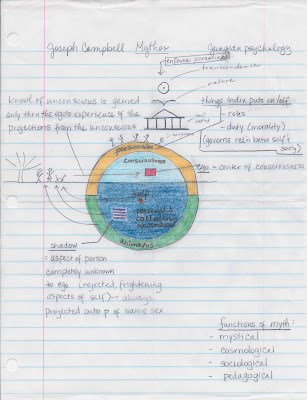 Joseph Campbell Mythos Jungian psychology
enforce personas
transcendence
nature
knowl of unconscious is gained
only thru the ego's experience of the
projections from the unconscious
things indiv puts on/off
- roles
- duty (morality)
(governs reln betw self +
socy)
personas
consciousness
ego = center of consciousness
self
personal +
collective
unconscious
anima/us
shadow
= aspect of person
completely unknown
to ego (rejected, frightening
aspects of self) -- always
projected onto p of same sex
functions of myth:
- mystical
- cosmological
- sociological
- pedagogical